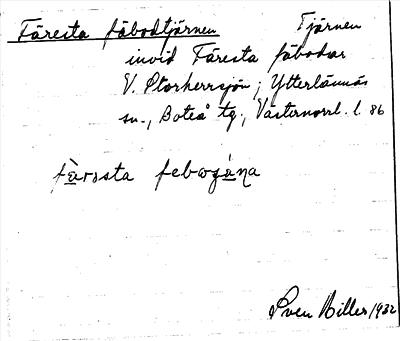 Färesta fäbodtjärnen Tjärnen
invid Färesta fäbodar
V. Storherrsjön; Ytterlännäs
sn., Boteå tg., Västernorrl. l. 86
fàrəsta febo
Sven Hiller 1932